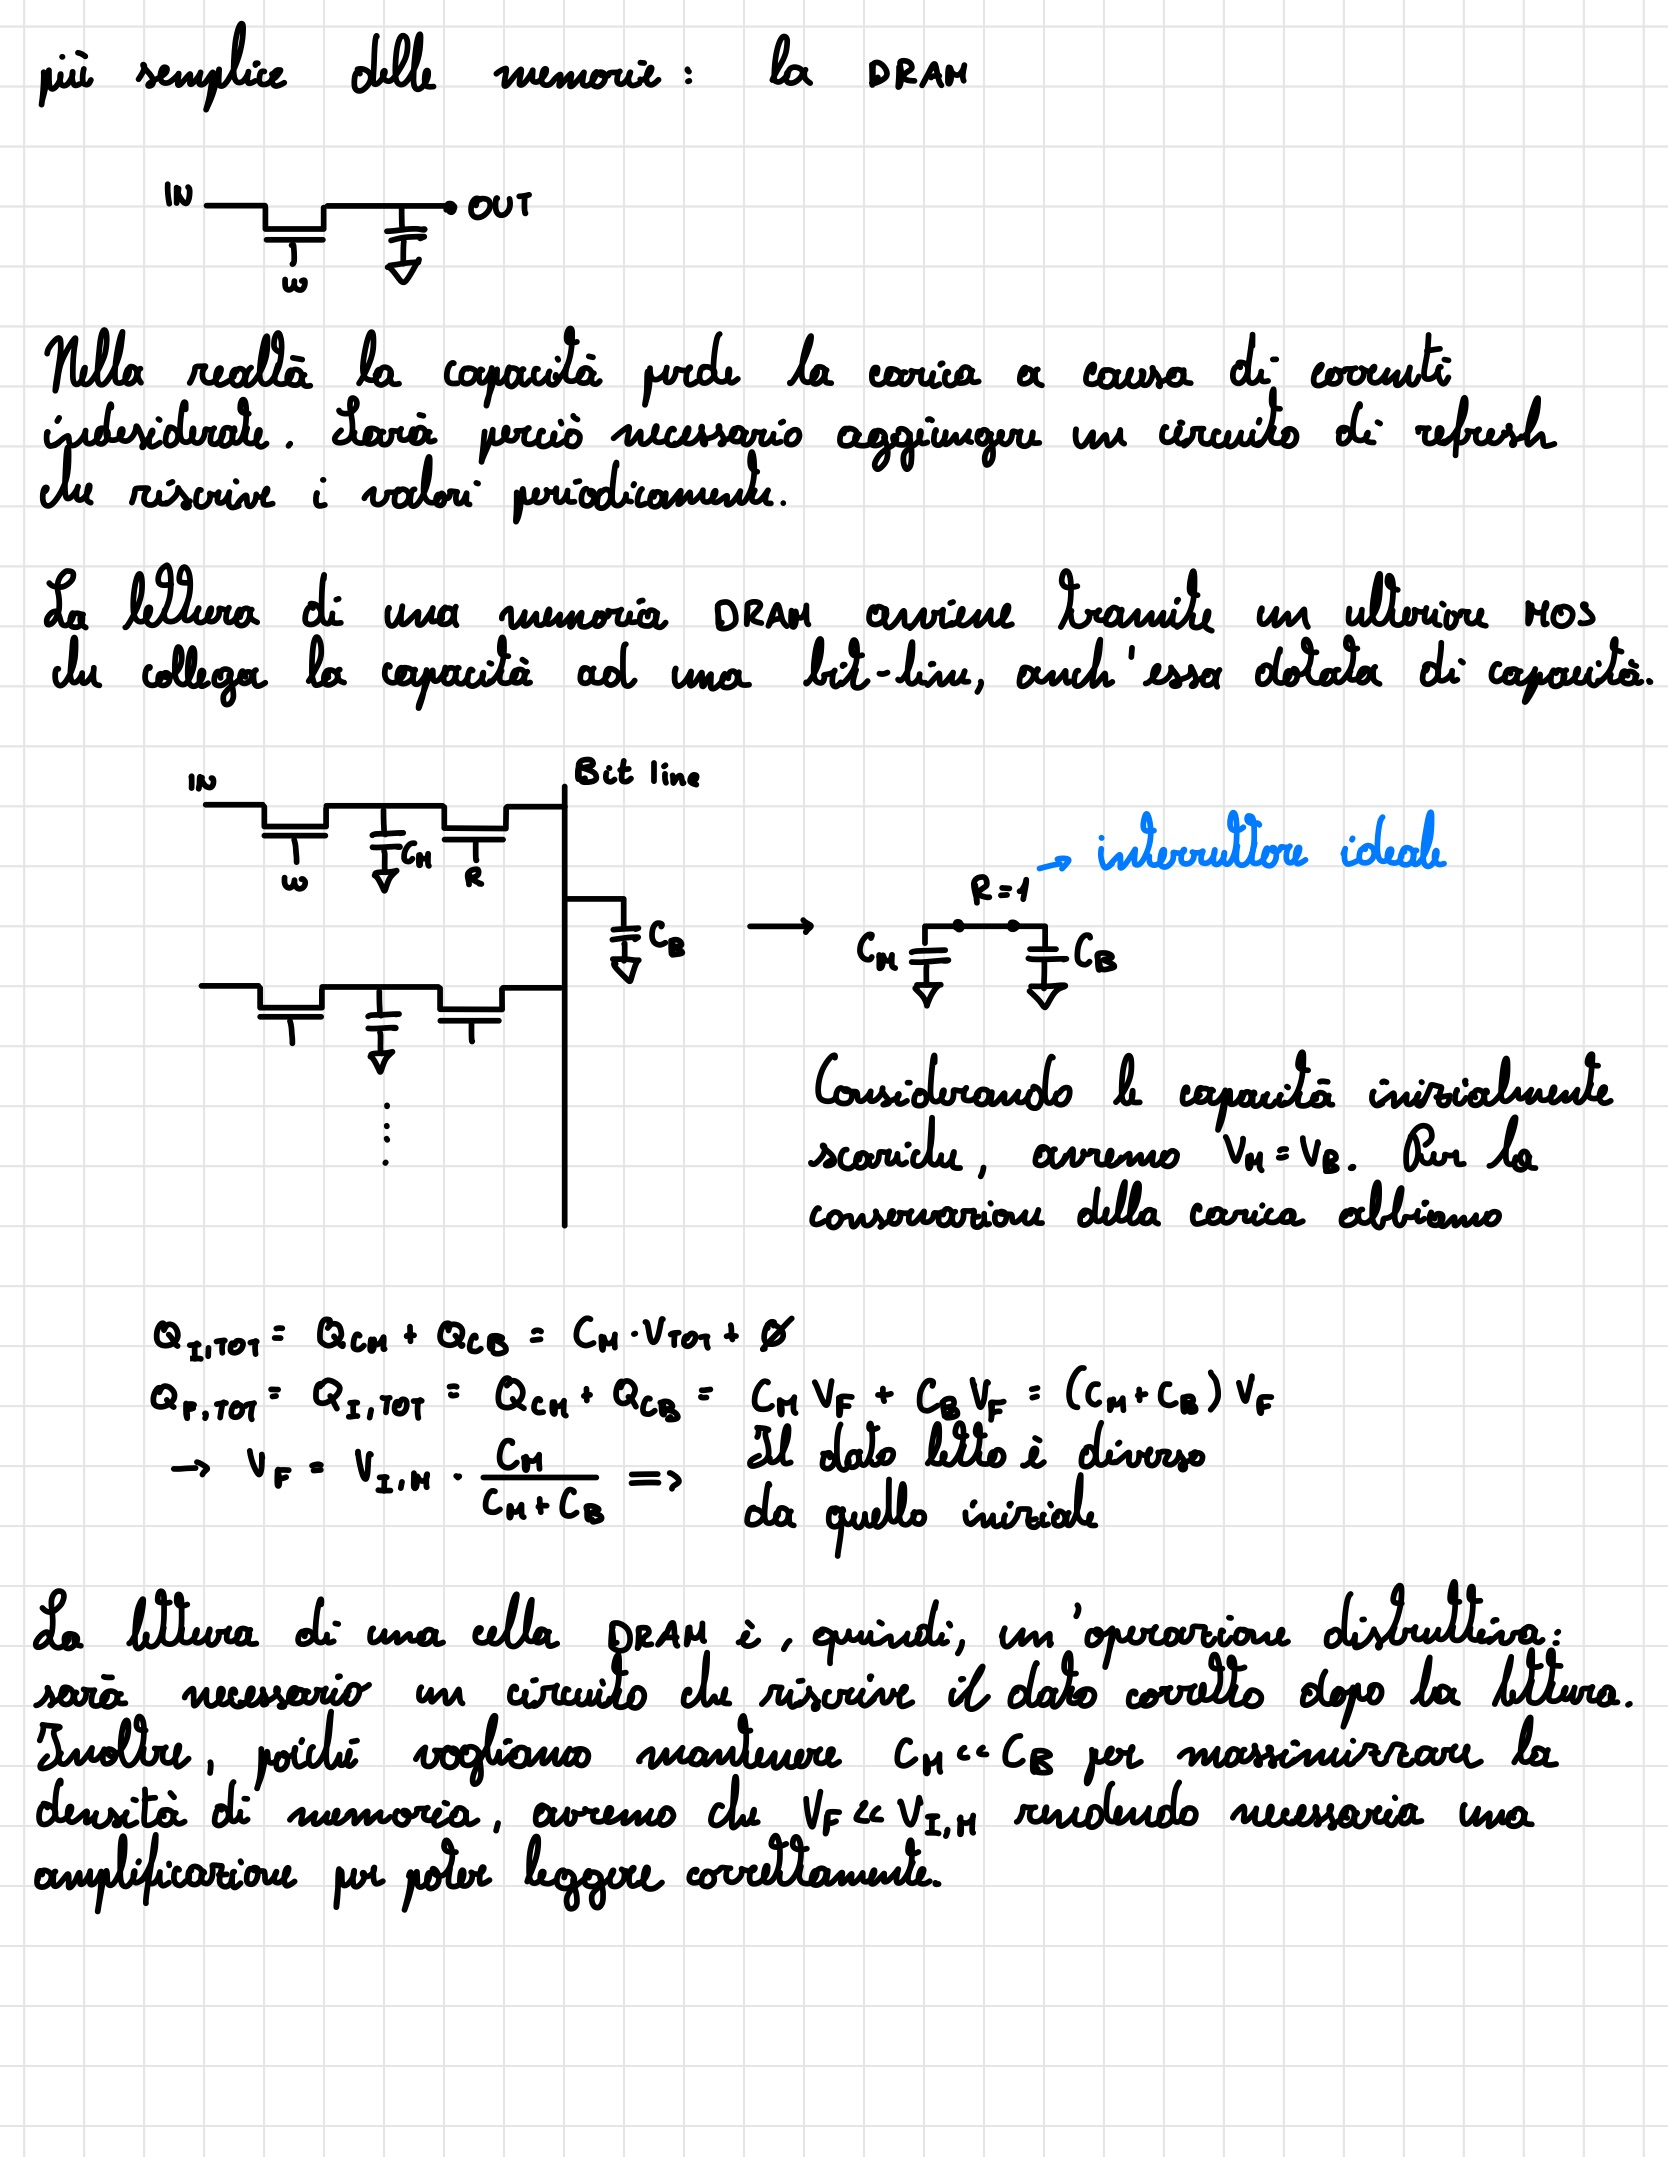 più semplice delle memorie: la DRAM
IN
OUT
W
Nella realtà la capacità perde la carica a causa di correnti
indesiderate. Sarà perciò necessario aggiungere un circuito di refresh
che riscrive i valori periodicamente.
La lettura di una memoria DRAM avviene tramite un ulteriore MOS
che collega la capacità ad una bit-line, anch'essa dotata di capacità.
IN
Bit line
W
CM
R
CB
→ interruttore ideale
R=1
CM
CB
Considerando le capacità inizialmente
scariche, avremo VM = VB. Per la
conservazione della carica abbiamo
QI,TOT = QCM + QCB = CM · VTOT + ∅
QF,TOT = QI,TOT = QCM + QCB = CM VF + CB VF = (CM + CB) VF
→ VF = VI,M · CM / (CM + CB) ⇒ Il dato letto è diverso
da quello iniziale
La lettura di una cella DRAM è, quindi, un'operazione distruttiva:
sarà necessario un circuito che riscrive il dato corretto dopo la lettura.
Inoltre, poiché vogliamo mantenere CM << CB per massimizzare la
densità di memoria, avremo che VF << VI,M rendendo necessaria una
amplificazione per poter leggere correttamente.